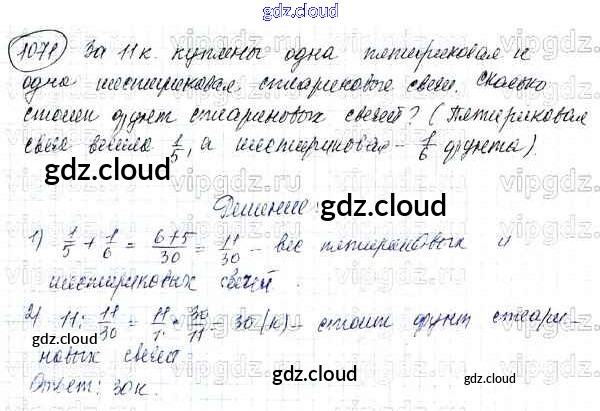 gdz.cloud
1071 За 11 к. куплены одна пятириковая и
одна шестириковая стеариновые свечи. Сколько
стоит фунт стеариновых свечей? (Пятириковая
свеча весила 1/5, а шестириковая - 1/6 фунта).
gdz.cloud
gdz.cloud
gdz.cloud
Решение:
1) 1/5 + 1/6 = 6+5/30 = 11/30 - вес пятериковых и
шестириковых свечей.
2) 11 : 11/30 = 11/1 * 30/11 - 30 (к) - стоит фунт стеари-
новых свечей.
gdz.cloud
Ответ: 30к.
gdz.cloud
gdz.cloud